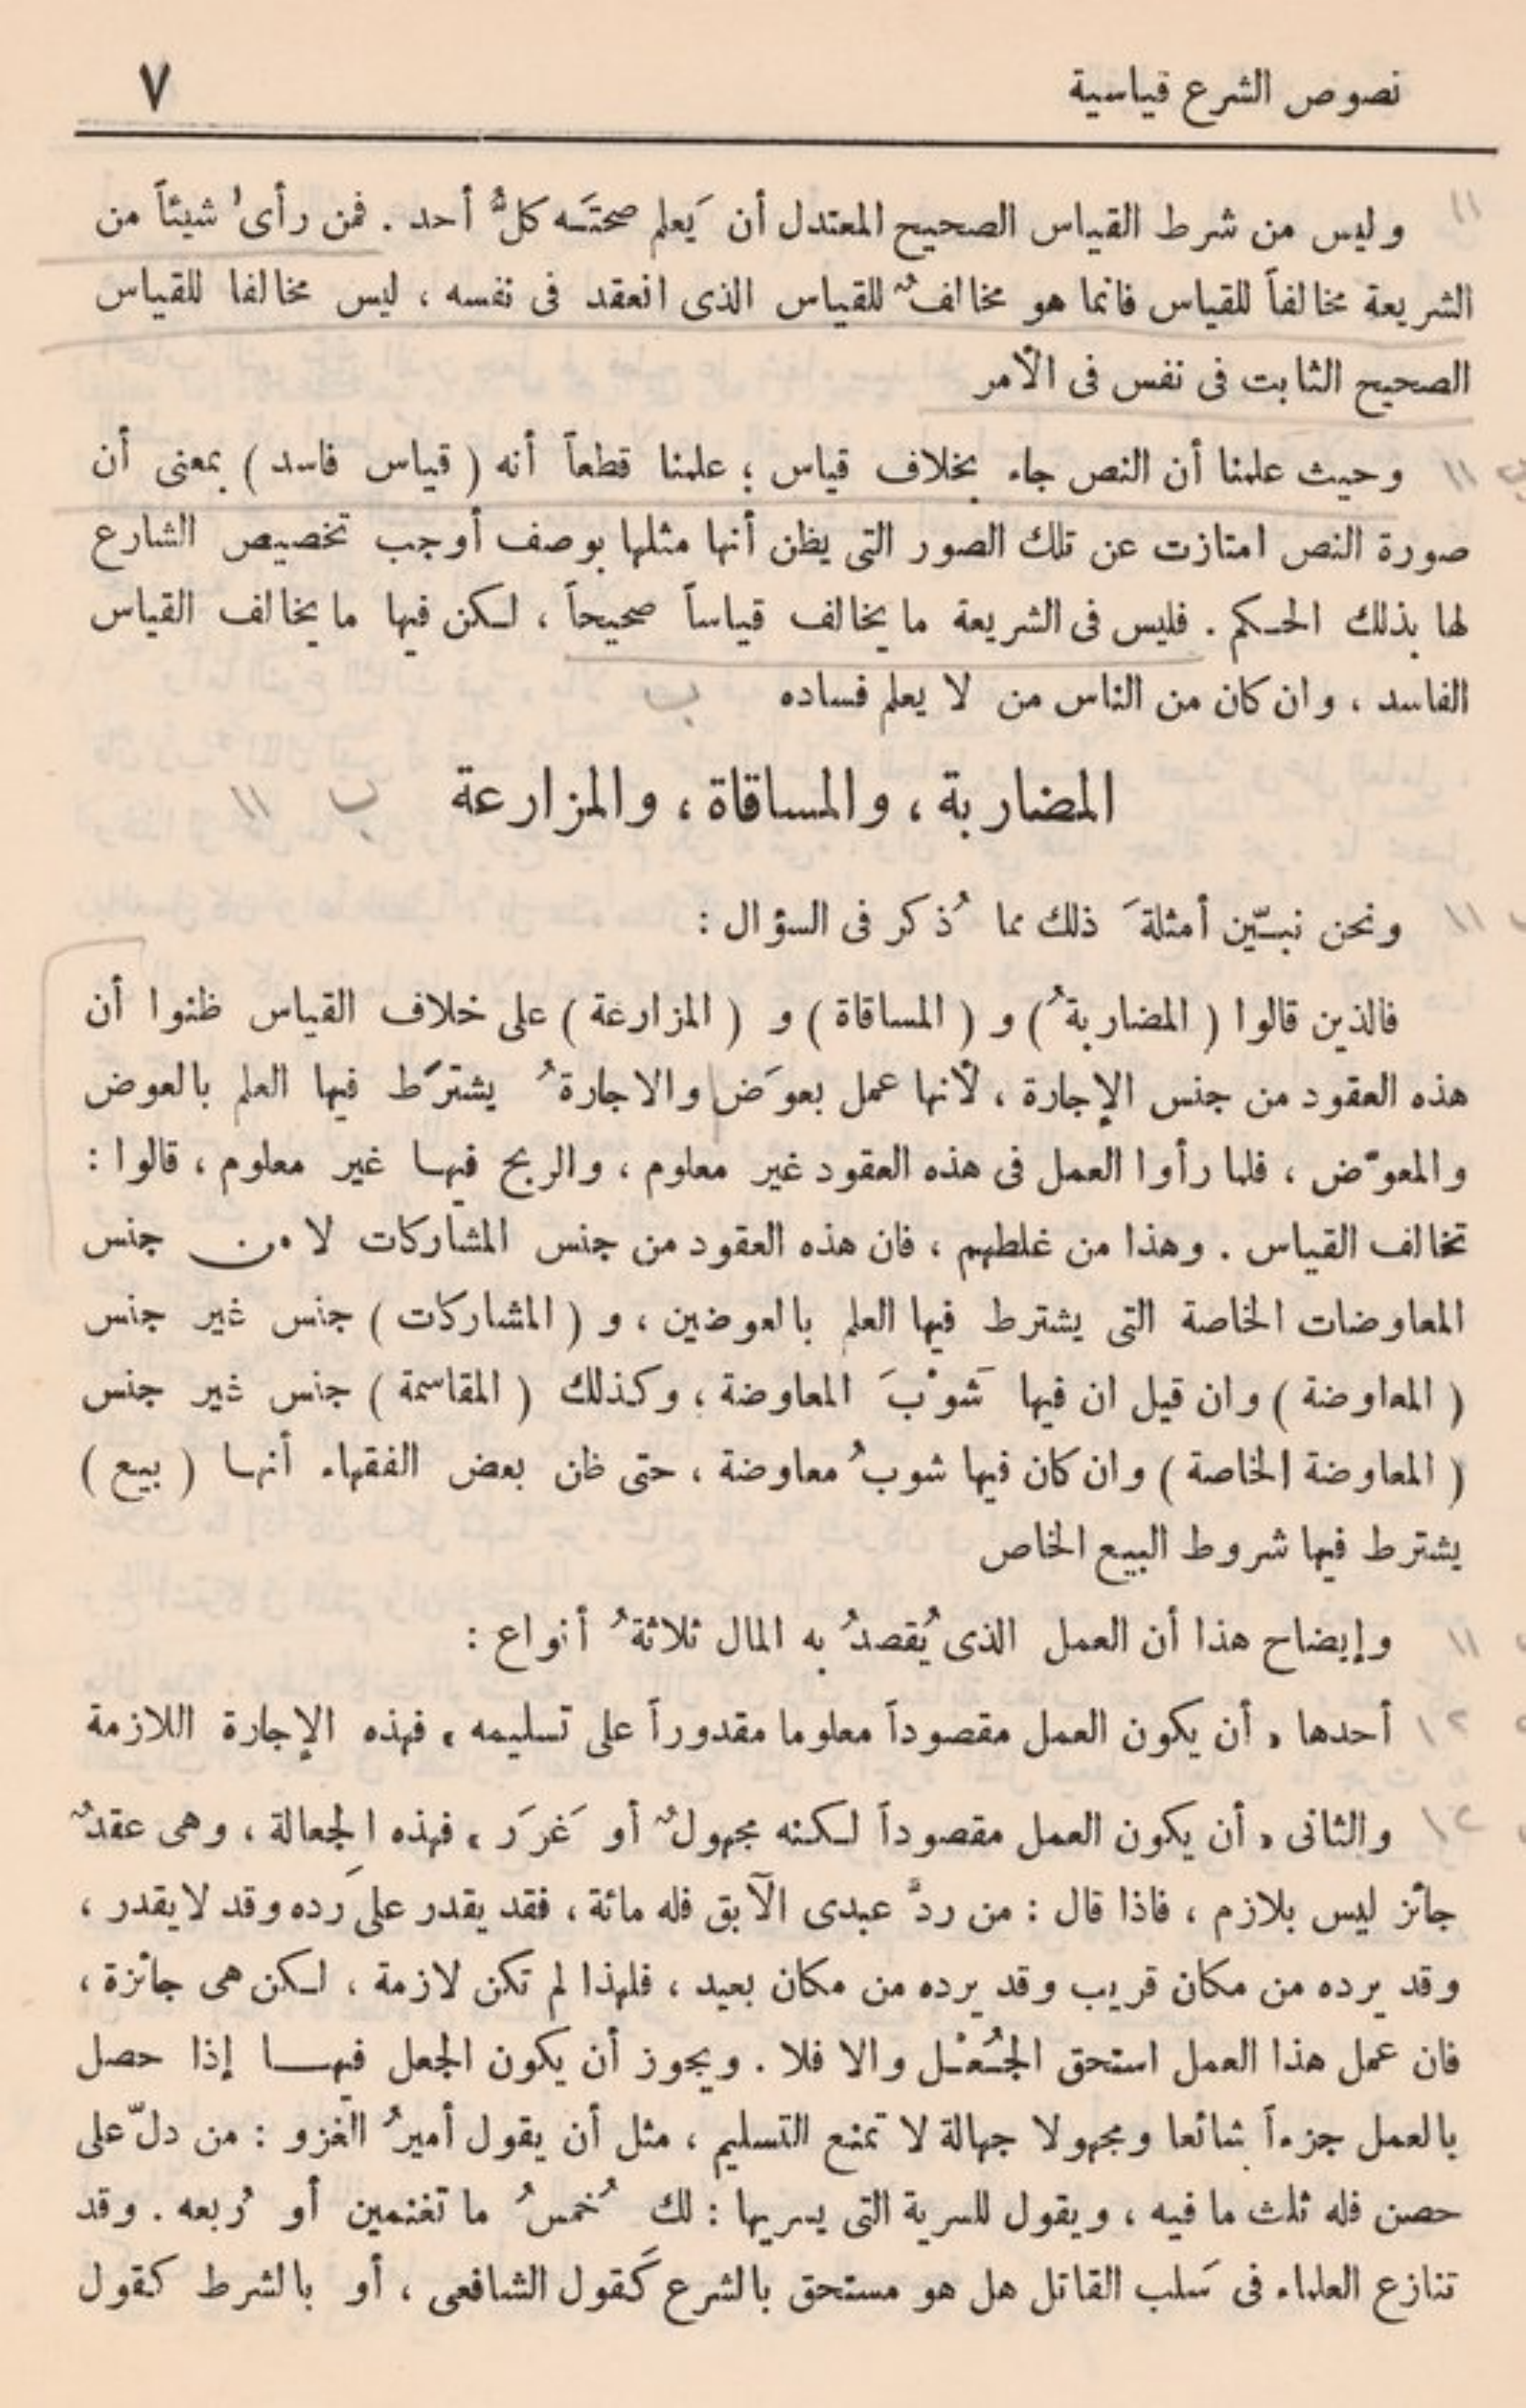 نصوص الشرع قياسية ٧
وليس من شرط القياس الصحيح المعتدل أن يَعلم صحتَـه كلُّ أحد . فمن رأى شيئاً من
الشريعة مخالفاً للقياس فانما هو مخالفٌ للقياس الذى انعقد فى نفسه ، ليس مخالفا للقياس
الصحيح الثابت فى نفس فى الأمر
وحيث علمنا أن النص جاء بخلاف قياس ؛ علمنا قطعاً أنه ( قياس فاسد ) بمعنى أن
صورة النص امتازت عن تلك الصور التى يظن أنها مثلها بوصف أوجب تخصيص الشارع
لها بذلك الحـكم . فليس فى الشريعة ما يخالف قياساً صحيحاً ، لـكن فيها ما يخالف القياس
الفاسد ، وان كان من الناس من لا يعلم فساده
المضاربة ، والمساقاة ، والمزارعة
ونحن نبـيّن أمثلةَ ذلك مما ذُكر فى السؤال :
فالذين قالوا ( المضاربةُ ) و ( المساقاة ) و ( المزارعة ) على خلاف القياس ظنوا أن
هذه العقود من جنس الإجارة ، لأنها عمل بعوَض والاجارةُ يشترَط فيها العلم بالعوض
والمعوّض ، فلما رأوا العمل فى هذه العقود غير معلوم ، والربح فيهـا غير معلوم ، قالوا :
تخالف القياس . وهذا من غلطهم ، فان هذه العقود من جنس المشاركات لا من جنس
المعاوضات الخاصة التى يشترط فيها العلم بالعوضين ، و ( المشاركات ) جنس غير جنس
( المعاوضة ) وان قيل ان فيها شَوْبَ المعاوضة ، وكذلك ( المقاسمة ) جنس غير جنس
( المعاوضة الخاصة ) وان كان فيها شوبُ معاوضة ، حتى ظن بعض الفقهاء أنهـا ( بيع )
يشترط فيها شروط البيع الخاص
وإيضاح هذا أن العمل الذى يُقصدُ به المال ثلاثةُ أنواع :
أحدها « أن يكون العمل مقصوداً معلوما مقدوراً على تسليمه » فهذه الإجارة اللازمة
والثانى « أن يكون العمل مقصوداً لـكنه مجهولٌ أو غَرَر » فهذه الجِعالة ، وهى عقدٌ
جائز ليس بلازم ، فاذا قال : من ردَّ عبدى الآبق فله مائة ، فقد يقدر على رَده وقد لا يقدر ،
وقد يرده من مكان قريب وقد يرده من مكان بعيد ، فلهذا لم تكن لازمة ، لـكن هى جائزة ،
فان عمل هذا العمل استحق الجُـعْـل والا فلا . ويجوز أن يكون الجعل فيهـــا إذا حصل
بالعمل جزءاً شائعا ومجهولا جهالة لا تمنع التسليم ، مثل أن يقول أميرُ الغزو : من دلّ على
حصن فله ثلث ما فيه ، ويقول للسرية التى يسريها : لك خُمسُ ما تغنمين أو رُبعه . وقد
تنازع العلماء فى سَلب القاتل هل هو مستحق بالشرع كَقول الشافعى ، أو بالشرط كقول